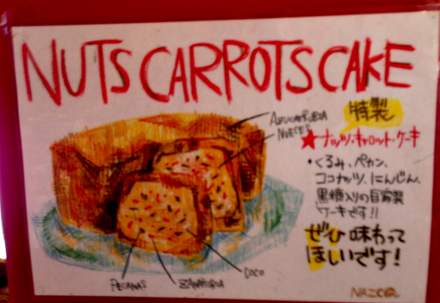 NUTS CARROTS CAKE
特製
★ナッツ・キャロット・ケーキ
・くるみ、ペカン、
ココナッツ、にんじん、
黒糖入りの自家製
ケーキです!!
ぜひ味わって
ほしいです!
NUECES
PECANAS
ZANAHORIA
COCO